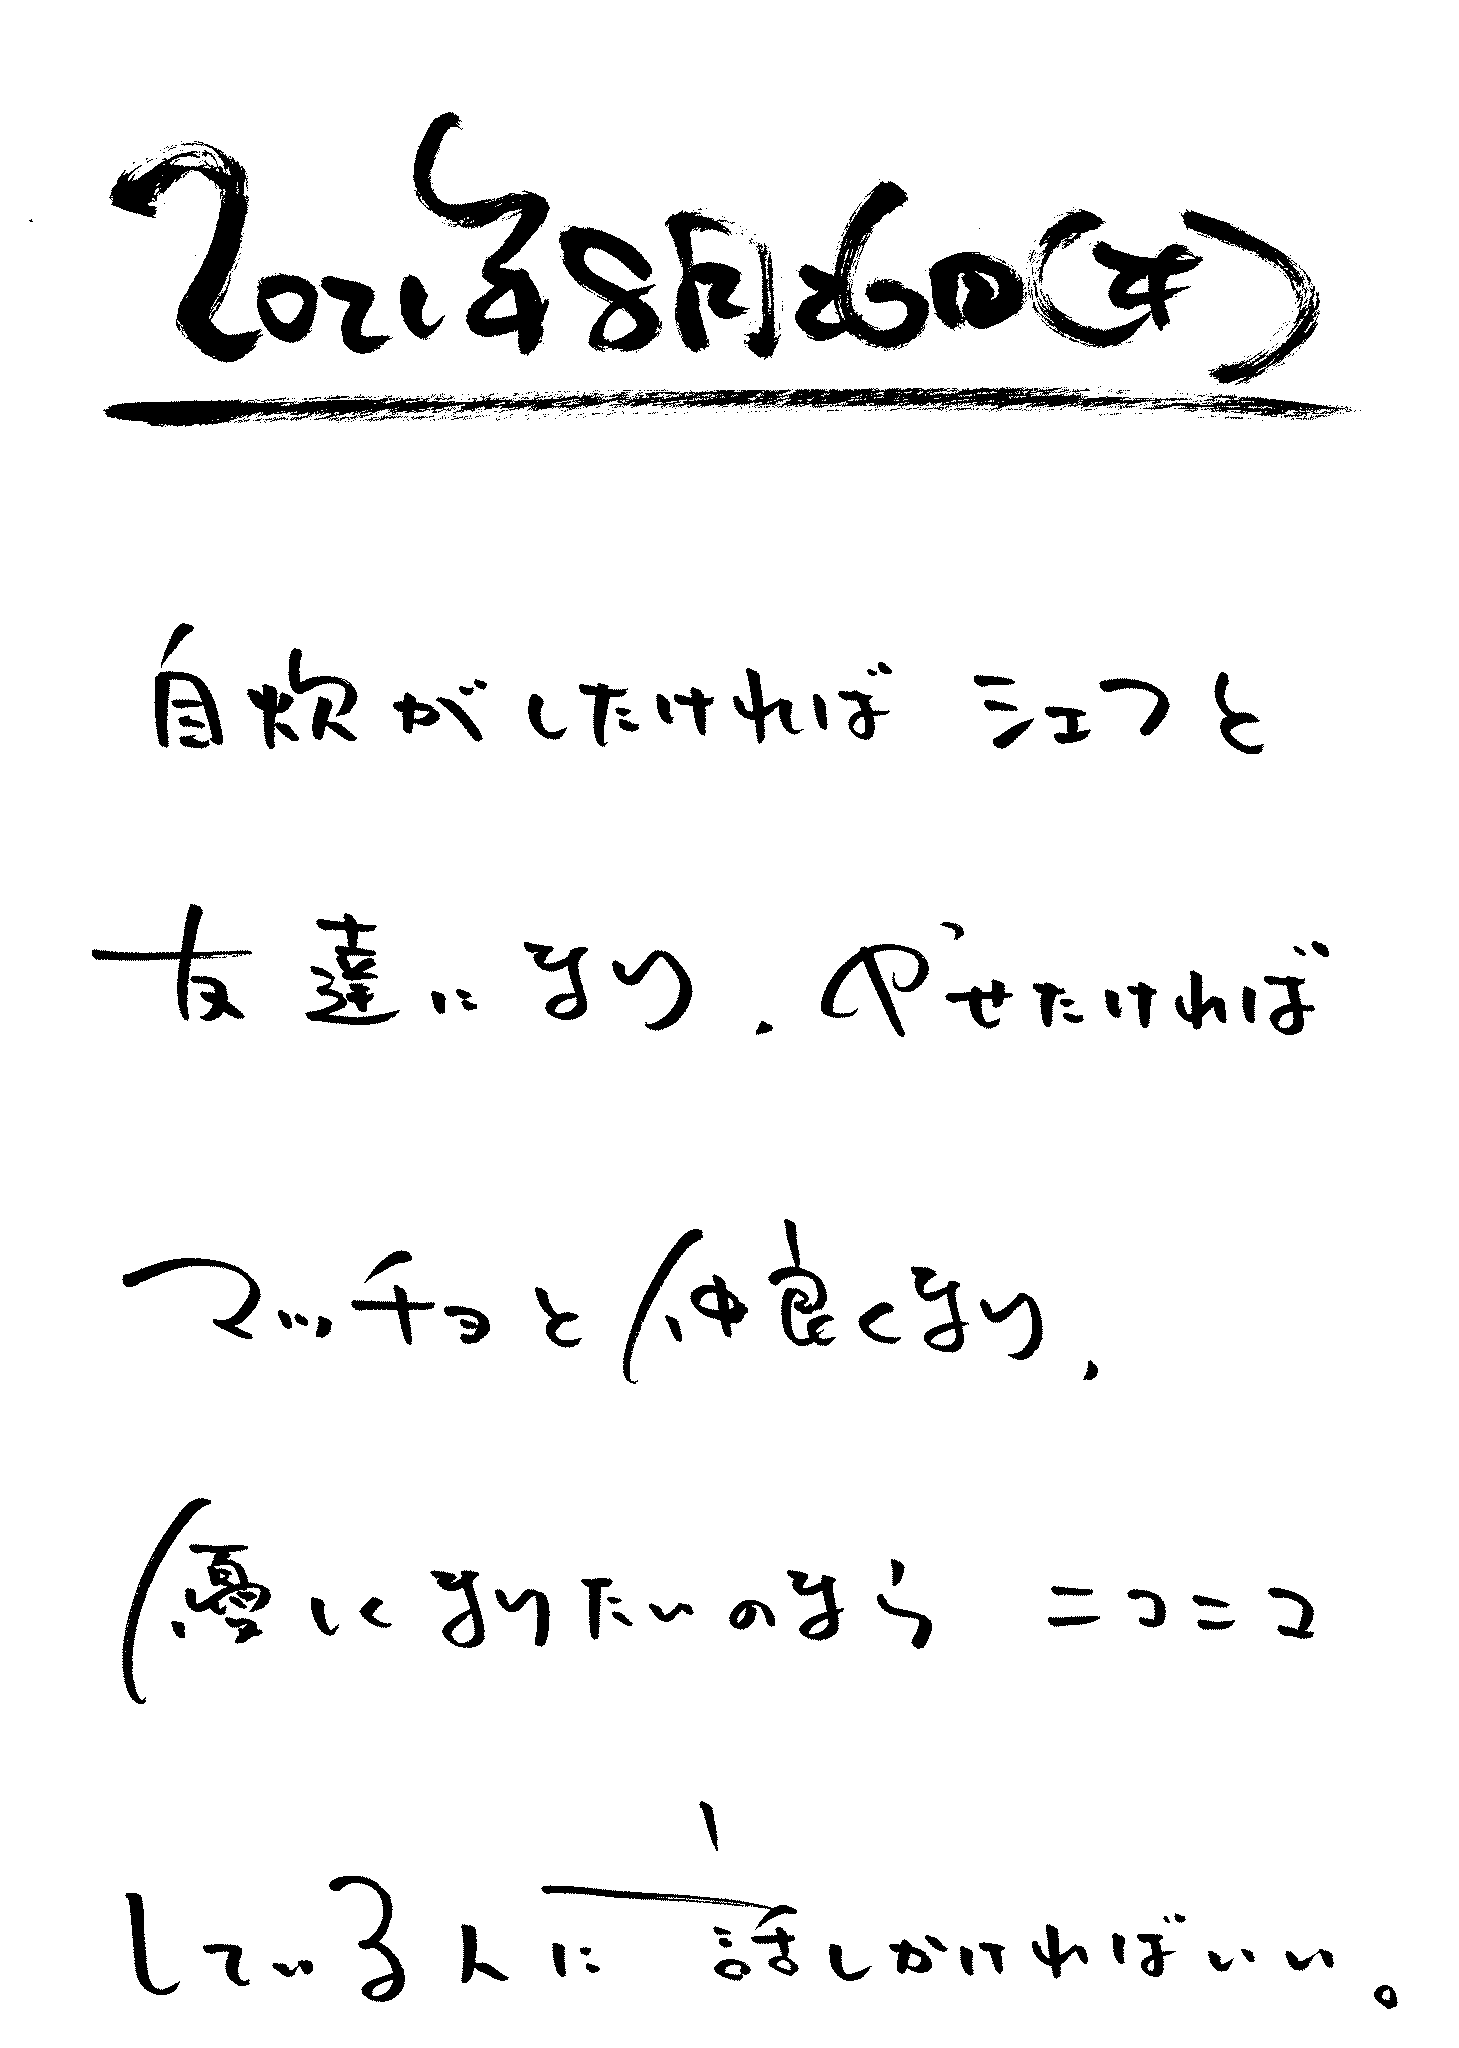 2021年8月26日(木)
自炊がしたければ シェフと
友達になり、やせたければ
マッチョと仲良くなり、
優しくなりたいのなら ニコニコ
している人に 話しかければいい。